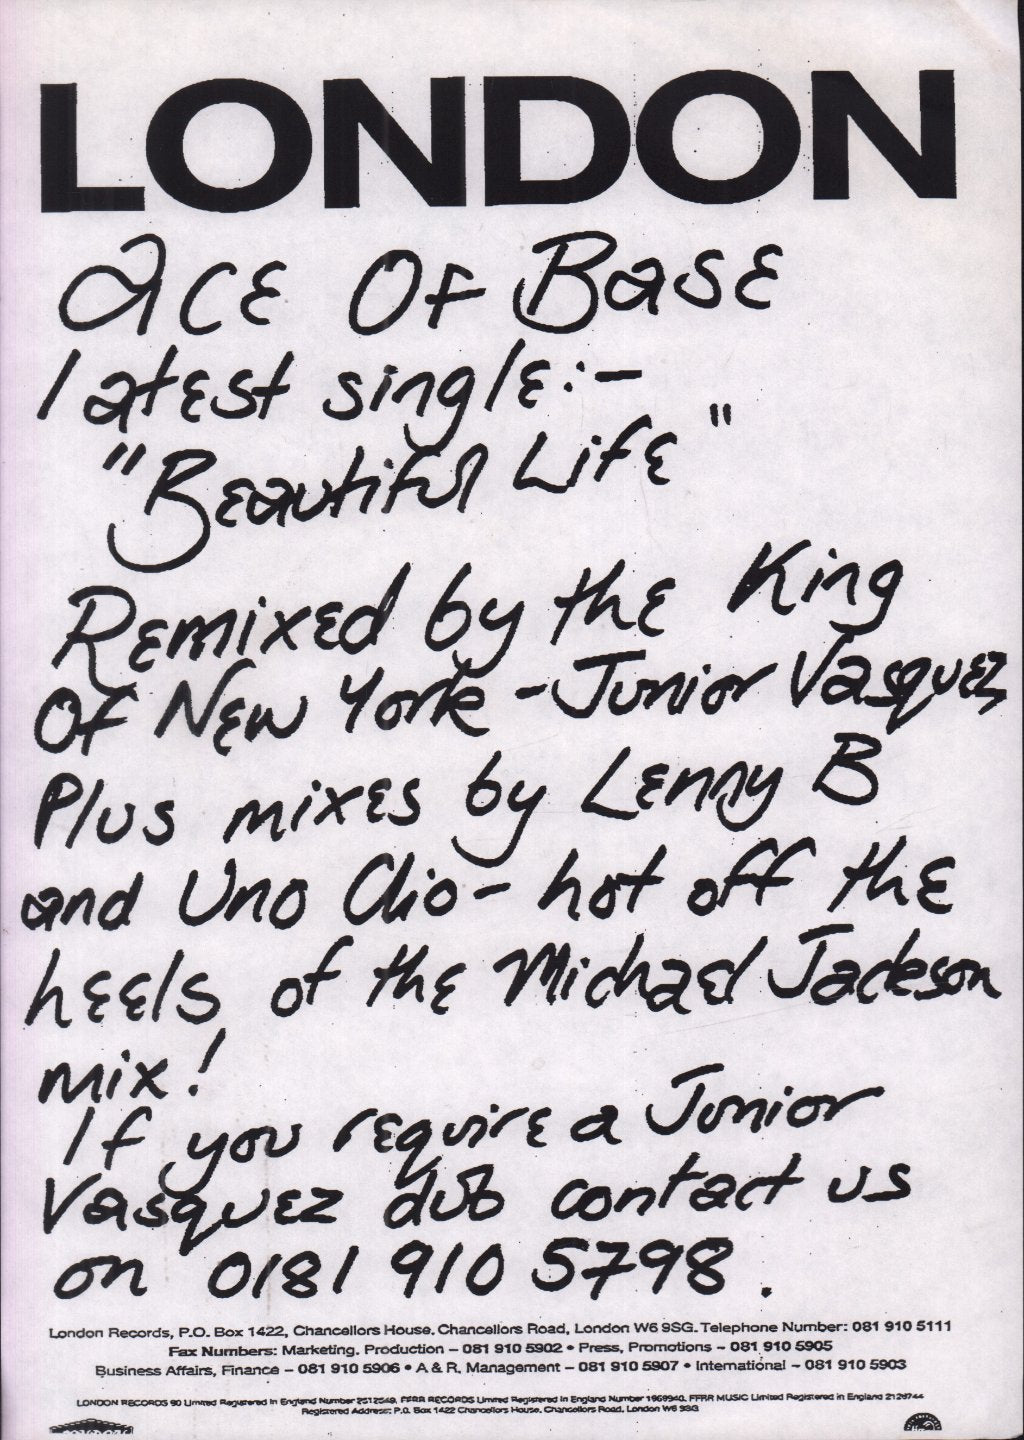 LONDON
Ace Of Base
latest single:-
"Beautiful Life"
Remixed by the King
Of New York - Junior Vasquez,
Plus mixes by Lenny B
and Uno Clio - hot off the
heels of the Michael Jackson
mix!
If you require a Junior
Vasquez dub contact us
on 0181 910 5798.
London Records, P.O. Box 1422, Chancellors House, Chancellors Road, London W6 9SG. Telephone Number: 081 910 5111
Fax Numbers: Marketing, Production – 081 910 5902 • Press, Promotions – 081 910 5905
Business Affairs, Finance – 081 910 5906 • A & R, Management – 081 910 5907 • International – 081 910 5903
LONDON RECORDS 90 Limited Registered in England Number 2512549, FFRR RECORDS Limited Registered in England Number 1969940, FFRR MUSIC Limited Registered in England 2129744
Registered Address: P.O. Box 1422 Chancellors House, Chancellors Road, London W6 9SG